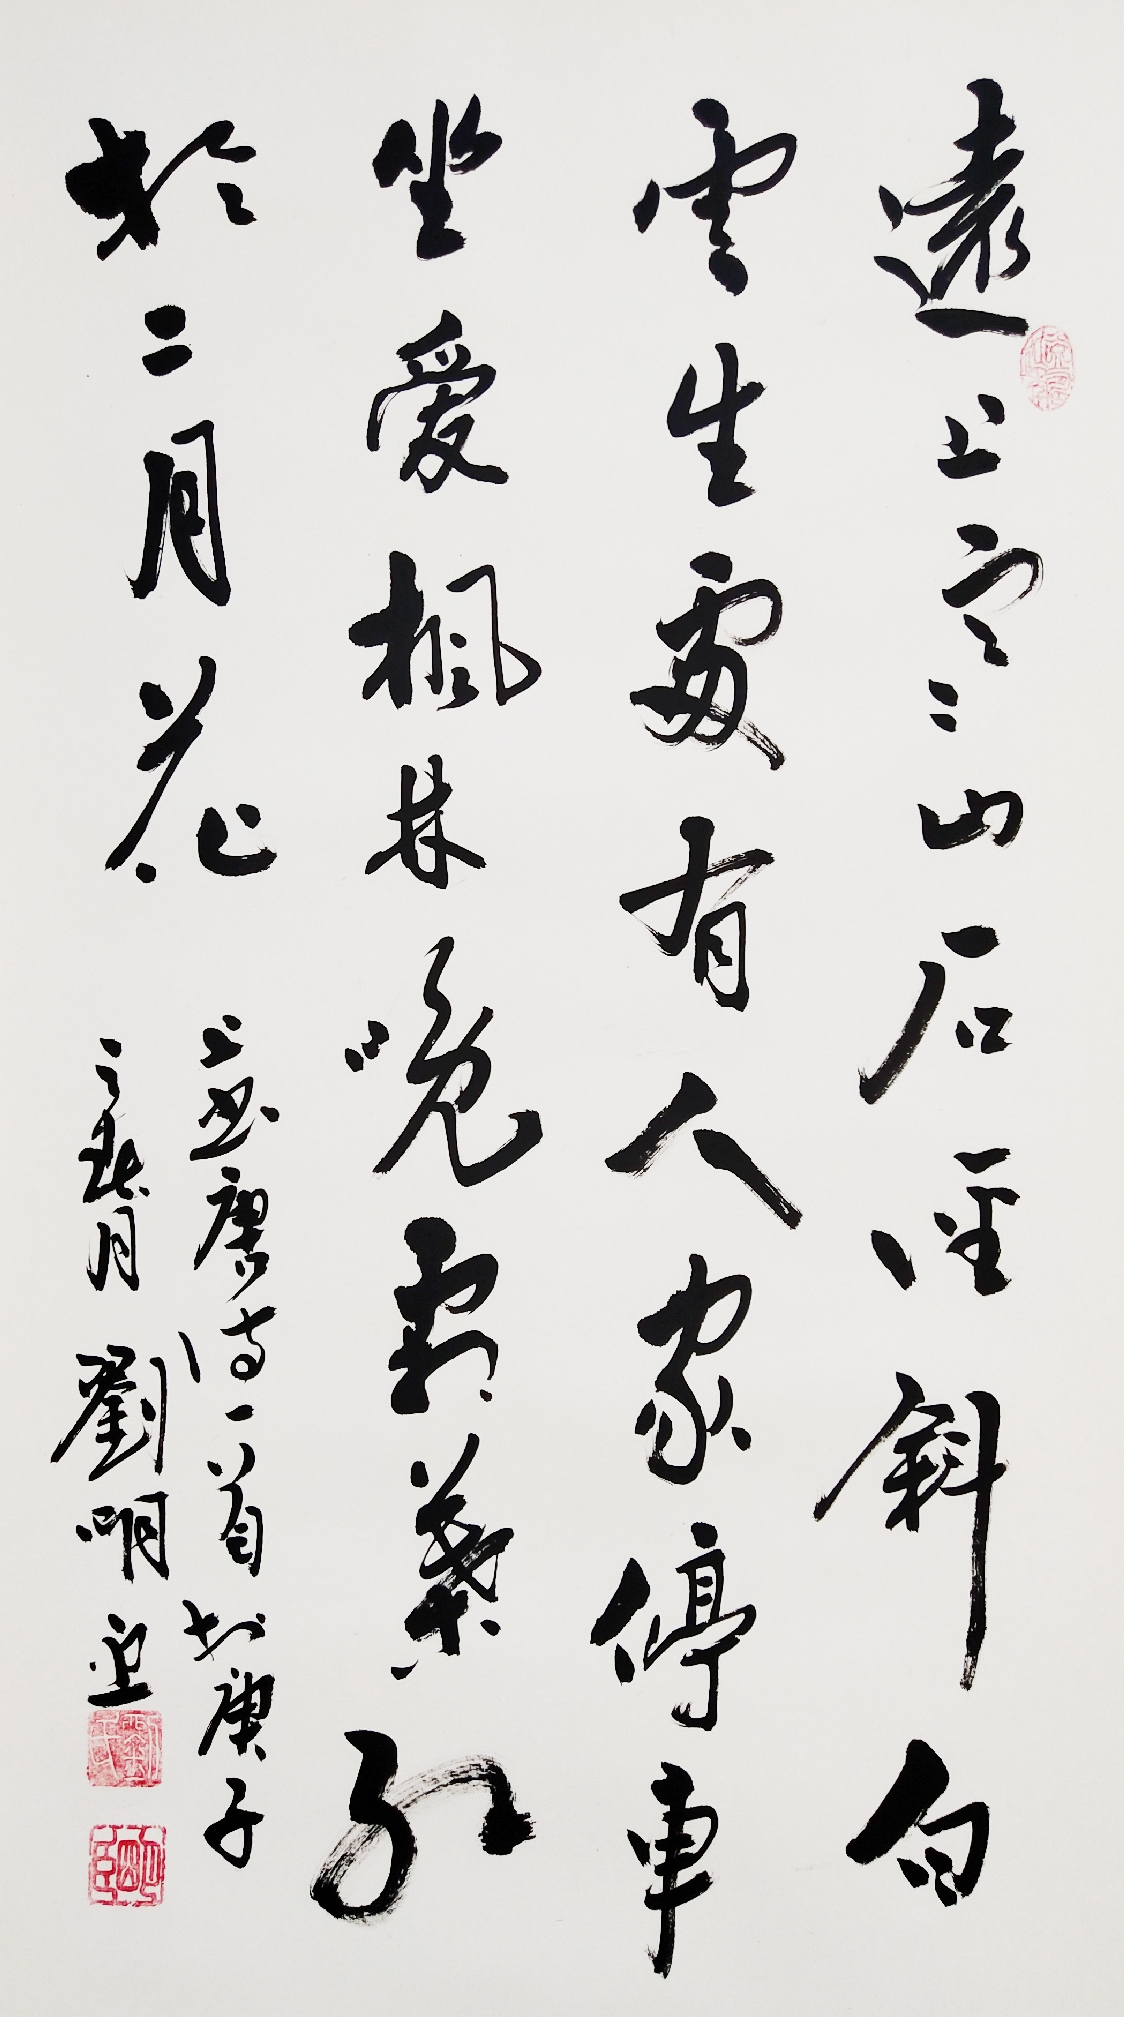 遠上寒山石徑斜白
雲生處有人家停車
坐愛楓林晚霜葉紅
於二月花
上書唐詩一首於庚子
之秋月 劉明